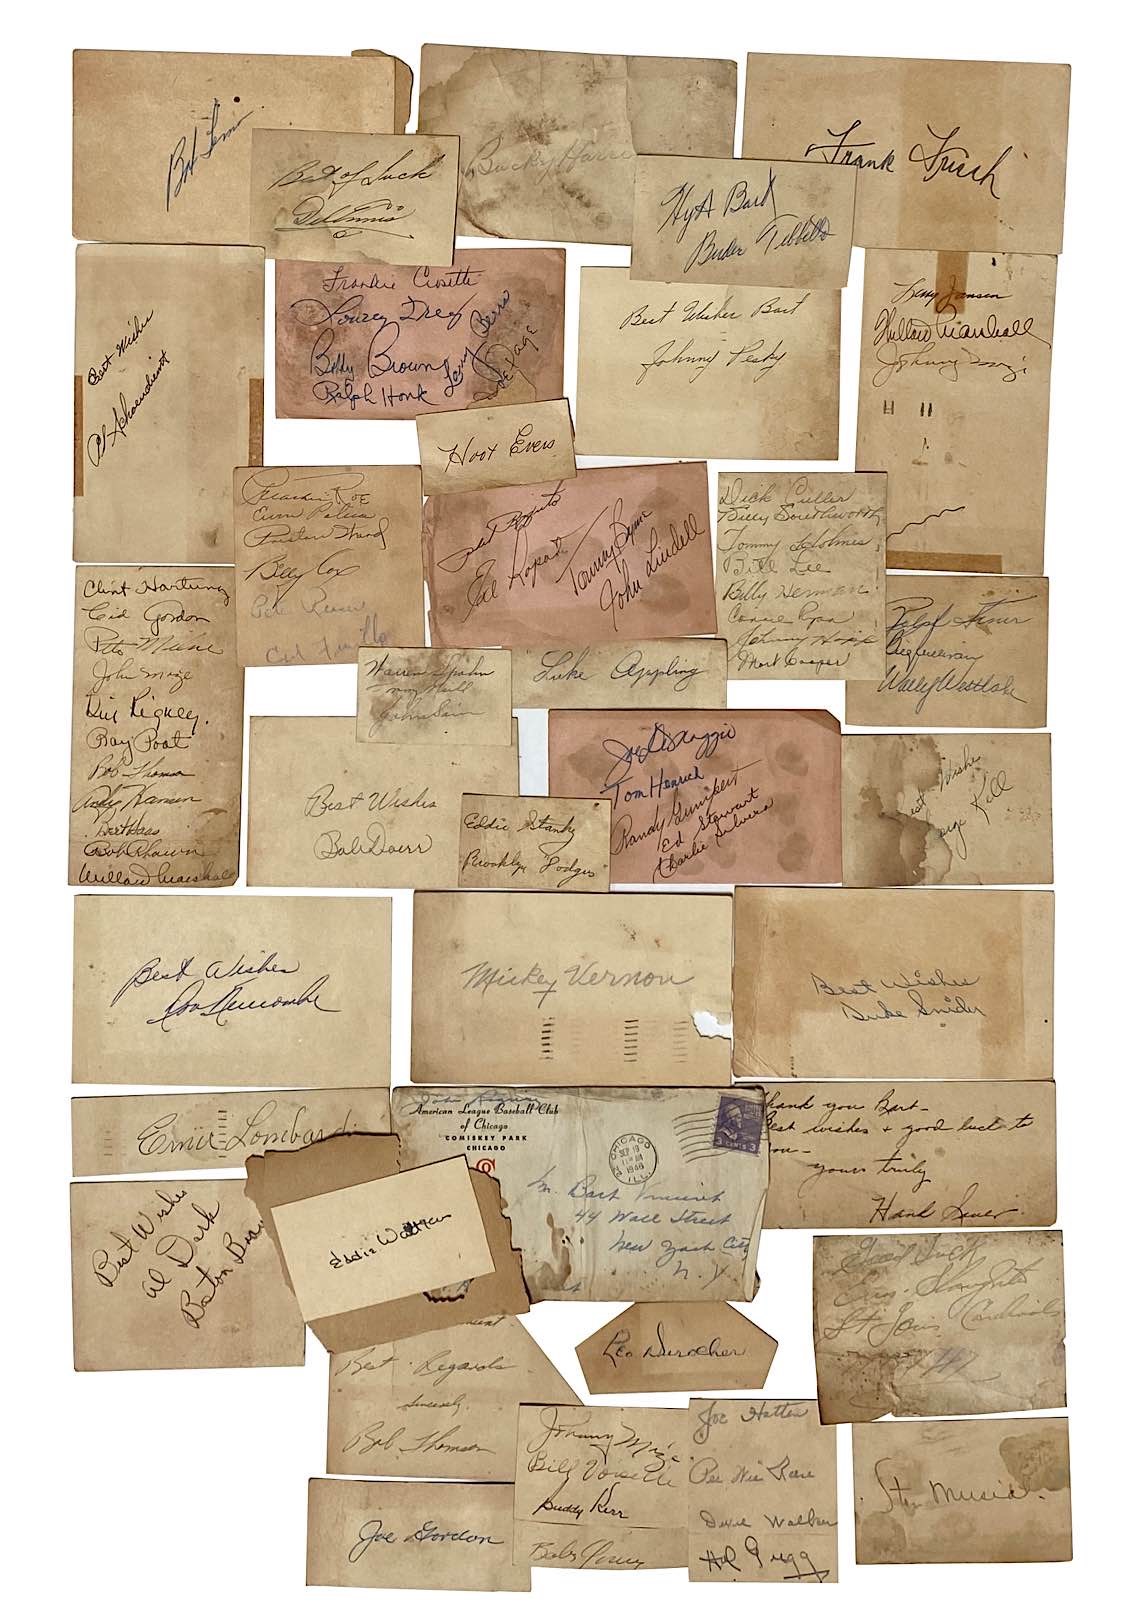 Bob Lemon
Best of Luck
Del Ennis
Bucky Harris
Hy A Bart
Birdie Tebbetts
Frank Frisch
Best Wishes
Al Schoendienst
Frankie Crosetti
Billy Brown
Ralph Houk
Berra
Joe Page
Best Wishes Bart
Johnny Pesky
Larry Jansen
Willard Marshall
Johnny Mize
Hoot Evers
Preacher Roe
Erv Palica
Billy Cox
Pete Reiser
Carl Furillo
Best Regards
Ed Lopat
Tommy Byrne
John Lindell
Dick Culler
Billy Southworth
Tommy Holmes
Bill Lee
Billy Herman
Connie Ryan
Johnny Hopp
Mort Cooper
Clint Hartung
Sid Gordon
John Mize
Bill Rigney
Ray Poat
Bob Thomson
Andy Hansen
Bert Haas
Bob Rhawn
Willard Marshall
Ralph Kiner
Wally Westlake
Warren Spahn
Tommy Neill
John Sain
Luke Appling
Best Wishes
Bob Doerr
Eddie Stanky
Brooklyn Dodgers
Joe DiMaggio
Tom Henrich
Randy Gumpert
Ed Stewart
Charlie Silvera
Best Wishes
George Kell
Best Wishes
Don Newcombe
Mickey Vernon
Best Wishes
Duke Snider
Ernie Lombardi
American League Baseball Club
of Chicago
COMISKEY PARK
CHICAGO
CHICAGO
SEP 19
1946
ILL.
3 CENTS 3
Mr. Bart Vincent
44 Wall Street
New York City
N. Y
Thank you Bart-
Best wishes & good luck to
you-
yours truly
Hank Sauer
Best Wishes
Al Dark
Boston Braves
Eddie Waitkus
Good Luck
Enos Slaughter
St Louis Cardinals
Best Regards
Sincerely
Bob Thomson
Leo Durocher
Johnny Mize
Bill Voiselle
Buddy Kerr
Joe Hatten
Pee Wee Reese
Dixie Walker
Hal Gregg
Stan Musial
Joe Gordon